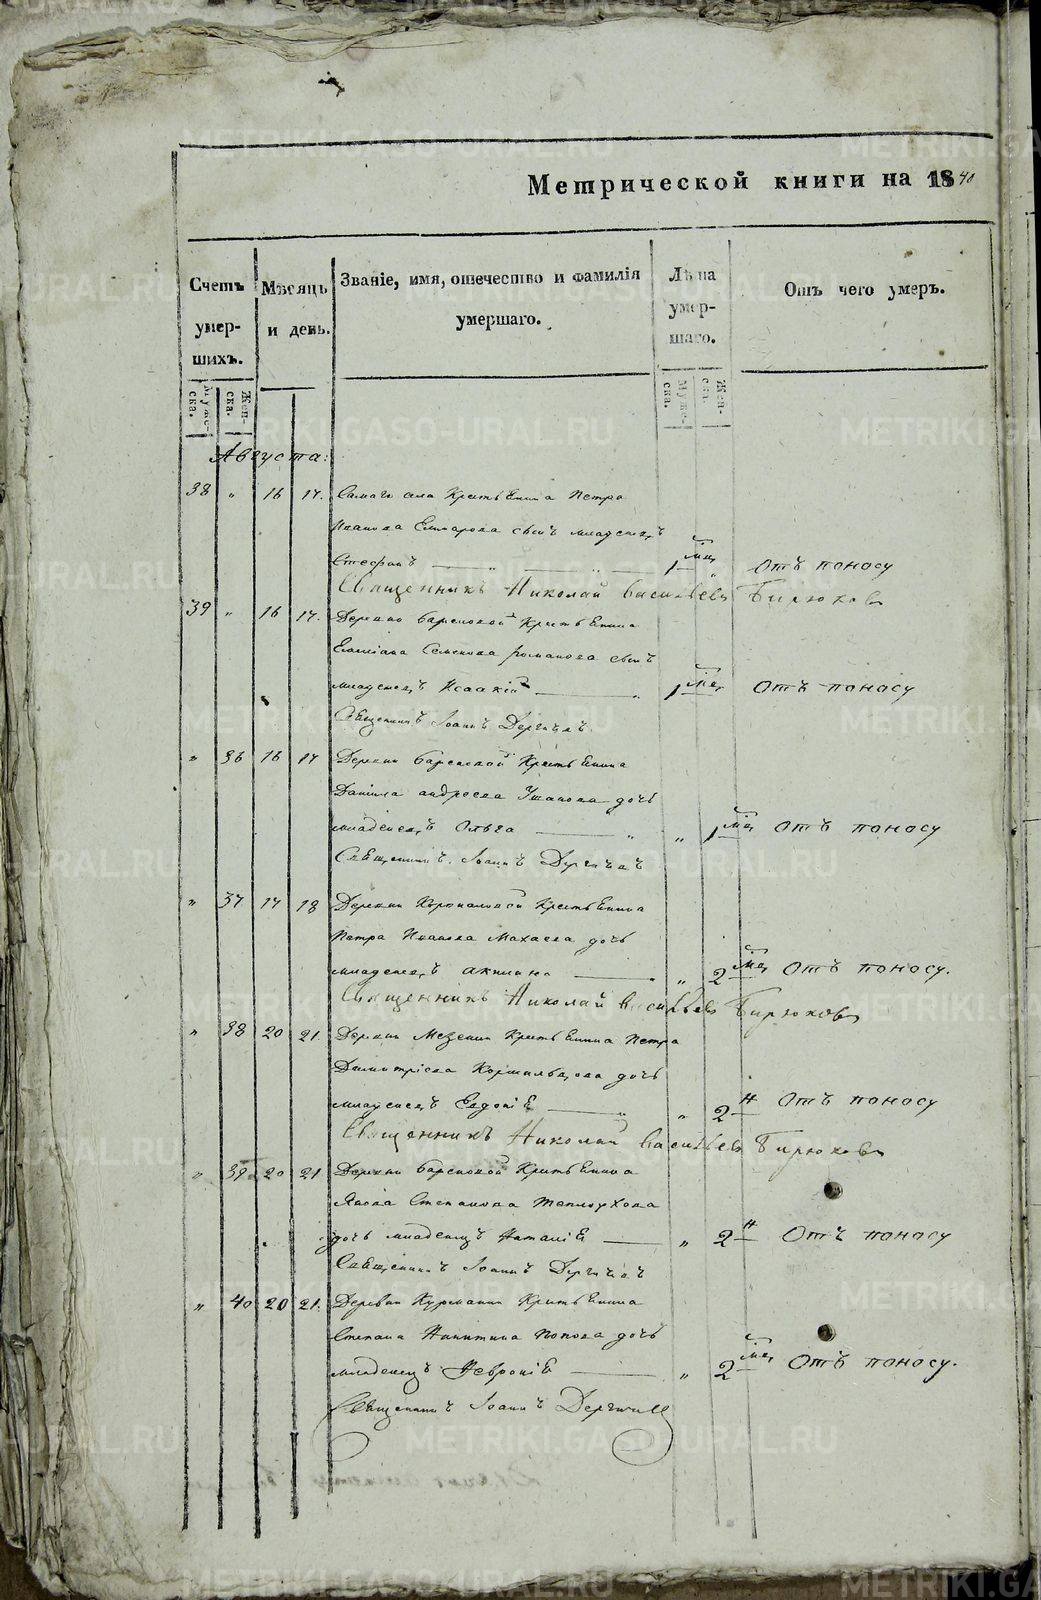 Метрической книги на 1840
Счетъ умер- шихъ.
Мѣсяцъ и день.
Званіе, имя, отечество и фамилія умершаго.
Лѣта умер- шаго.
Отъ чего умеръ.
Муже- ска.
Жен- ска.
Муже- ска.
Жен- ска.
Августа:
38 „ 16 17. Самаго села Крестьянина Петра
Иванова сынъ младенецъ
Стефанъ 1 мц „ Отъ поносу
Священникъ Николай Васильевъ Бирюковъ
39 „ 16 17. Деревни Крестьянина
Семенова Романова сынъ
младенецъ Исаакій 1 мц Отъ поносу
Священникъ Іоаннъ
„ 36 16 17 Деревни Крестьянина
Даніила Андреева Ушакова дочь
младенецъ Ольга „ 1 мц Отъ поносу
Священникъ Іоаннъ
„ 37 17 18 Деревни Крестьянина
Петра Иванова Махаева дочь
младенецъ „ 2 мц Отъ поносу.
Священникъ Николай Васильевъ Бирюковъ
„ 38 20 21. Деревни Мезенки Крестьянина Петра
Димитріева Кормильцова дочь
младенецъ Евдокія „ 2 н Отъ поносу
Священникъ Николай Васильевъ Бирюковъ
„ 39 20 21 Деревни Крестьянина
Якова Степанова Теплоухова
дочь младенецъ Наталія „ 2 н Отъ поносу
Священникъ Іоаннъ
„ 40 20 21. Деревни Курманки Крестьянина
Степана Никитина Попова дочь
младенецъ Февронія „ 2 мц Отъ поносу.
Священникъ Іоаннъ
METRIKI.GASO-URAL.RU